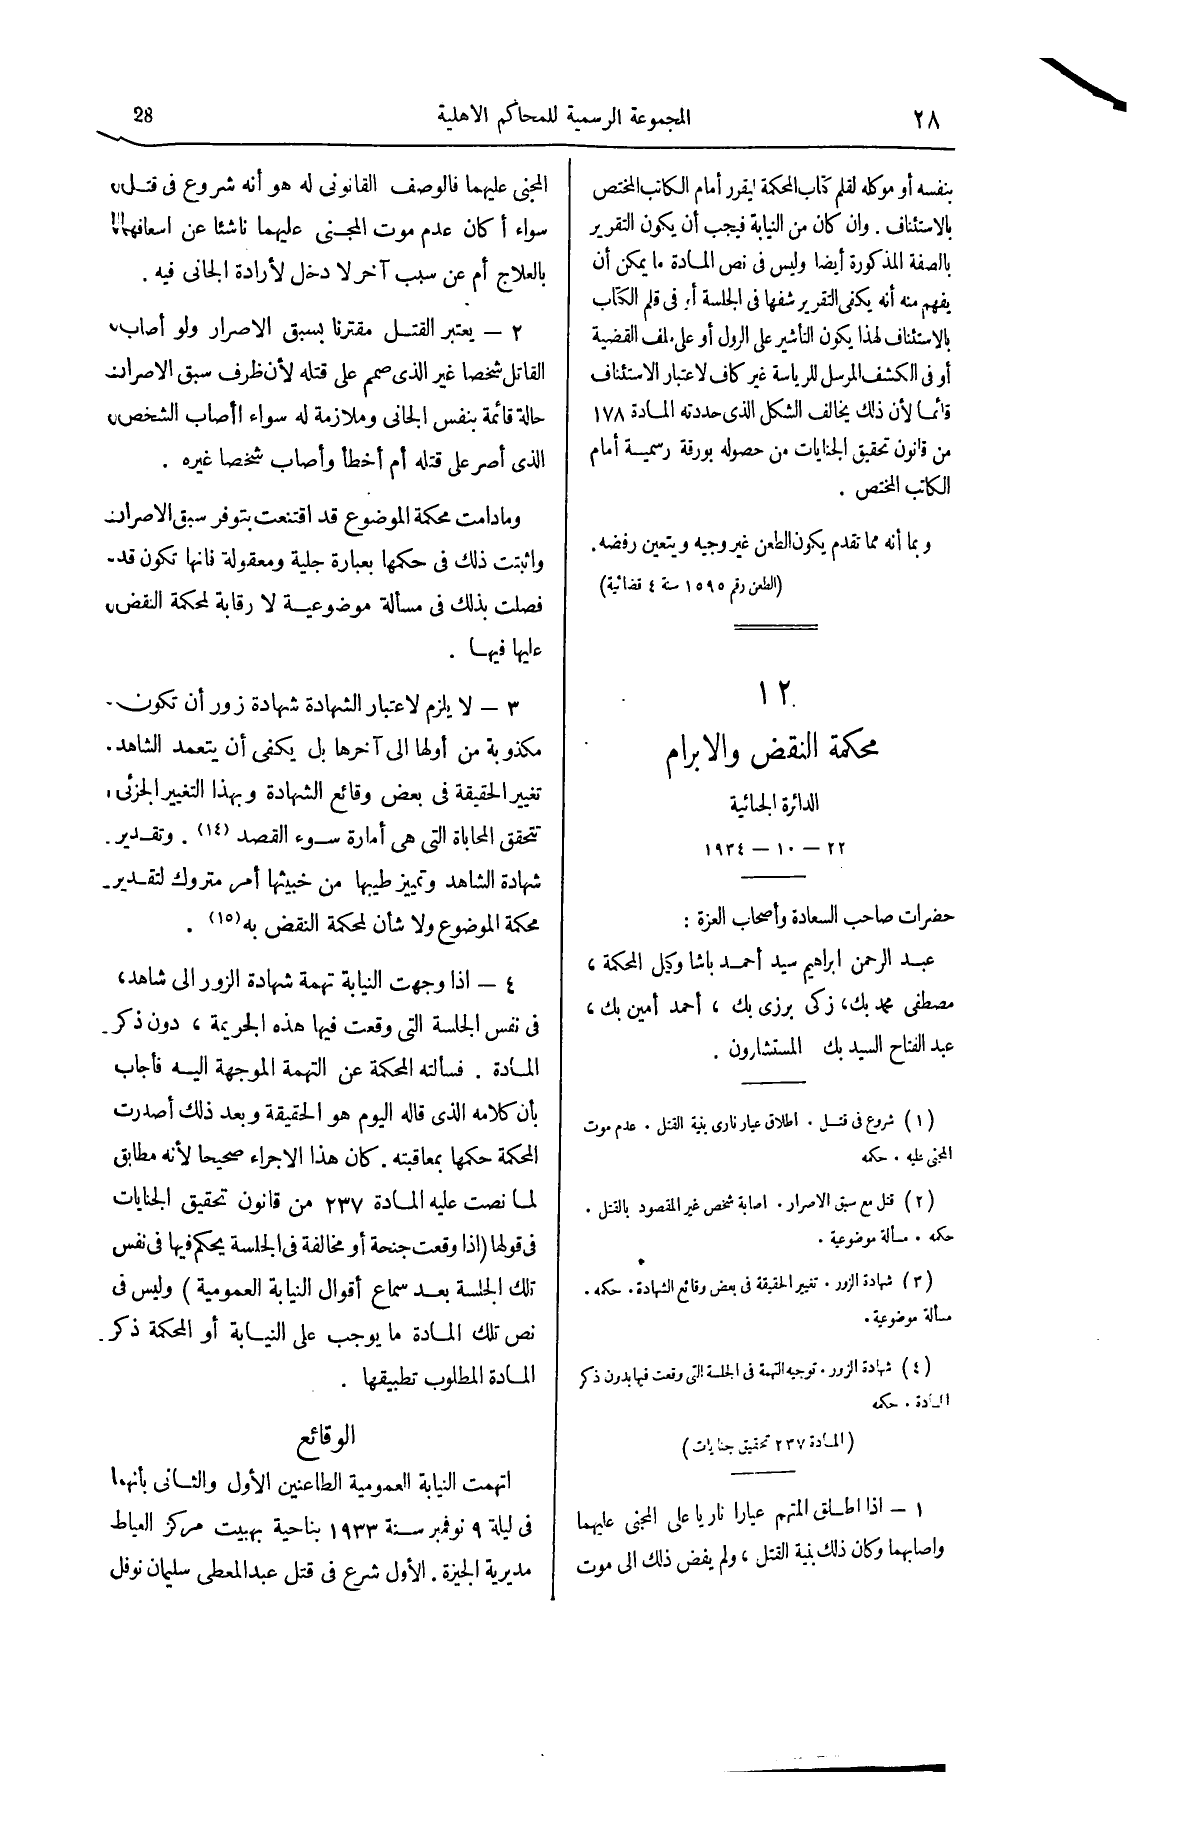 ٢٨
المجموعة الرسمية للمحاكم الاهلية
28
بنفسه أو موكله لقلم كتاب المحكمة ليقرر أمام الكاتب المختص
بالاستئناف . وان كان من النيابة فيجب أن يكون التقرير
بالصفة المذكورة أيضا وليس فى نص المادة ما يمكن أن
يفهم منه أنه يكفى التقرير شفها فى الجلسة أو فى قلم الكتاب
بالاستئناف لهذا يكون التأشير على الرول أو على ملف القضية
أو فى الكشف المرسل للرياسة غير كاف لاعتبار الاستئناف
قائما لأن ذلك يخالف الشكل الذى حددته المادة ١٧٨
من قانون تحقيق الجنايات من حصوله بورقة رسمية أمام
الكاتب المختص .
وبما أنه مما تقدم يكون الطعن غير وجيه ويتعين رفضه .
(الطعن رقم ١٥٩٥ سنة ٤ قضائية)
١٢
محكمة النقض والابرام
الدائرة الجنائية
٢٢ — ١٠ — ١٩٣٤
حضرات صاحب السعادة وأصحاب العزة :
عبد الرحمن ابراهيم سيد أحمد باشا وكيل المحكمة ،
مصطفى محمد بك ، زكى برزى بك ، أحمد أمين بك ،
عبد الفتاح السيد بك المستشارون .
(١) شروع فى قتل . اطلاق عيار نارى بنية القتل . عدم موت
المجنى عليه . حكمه
(٢) قتل مع سبق الاصرار . اصابة شخص غير المقصود بالقتل .
حكمه . مسألة موضوعية .
(٣) شهادة الزور . تغيير الحقيقة فى بعض وقائع الشهادة . حكمه .
مسألة موضوعية .
(٤) شهادة الزور . توجيه التهمة فى الجلسة التى وقعت فيها بدون ذكر
المادة . حكمه
(المادة ٢٣٧ تحقيق جنايات)
١ — اذا اطلق المتهم عيارا ناريا على المجنى عليهما
واصابهما وكان ذلك بنية القتل ، ولم يفض ذلك الى موت
المجنى عليهما فالوصف القانونى له هو أنه شروع فى قتل
سواء أكان عدم موت المجنى عليهما ناشئا عن اسعافهما
بالعلاج أم عن سبب آخر لا دخل لأرادة الجانى فيه .
٢ — يعتبر القتل مقترنا بسبق الاصرار ولو أصاب
القاتل شخصا غير الذى صمم على قتله لأن ظرف سبق الاصرار
حالة قائمة بنفس الجانى وملازمة له سواء أأصاب الشخص
الذى أصر على قتله أم أخطأ وأصاب شخصا غيره .
ومادامت محكمة الموضوع قد اقتنعت بتوفر سبق الاصرار
واثبتت ذلك فى حكمها بعبارة جلية ومعقولة فانها تكون قد
فصلت بذلك فى مسألة موضوعية لا رقابة لمحكمة النقض
عليها فيها .
٣ — لا يلزم لاعتبار الشهادة شهادة زور أن تكون
مكذوبة من أولها الى آخرها بل يكفى أن يتعمد الشاهد
تغيير الحقيقة فى بعض وقائع الشهادة وبهذا التغيير الجزئى
تتحقق المحاباة التى هى أمارة سوء القصد (١٤) . وتقدير
شهادة الشاهد وتمييز طيبها من خبيثها أمر متروك لتقدير
محكمة الموضوع ولا شأن لمحكمة النقض به (١٥) .
٤ — اذا وجهت النيابة تهمة شهادة الزور الى شاهد ،
فى نفس الجلسة التى وقعت فيها هذه الجريمة ، دون ذكر
المادة . فسألته المحكمة عن التهمة الموجهة اليه فأجاب
بأن كلامه الذى قاله اليوم هو الحقيقة وبعد ذلك أصدرت
المحكمة حكمها بمعاقبته . كان هذا الاجراء صحيحا لأنه مطابق
لما نصت عليه المادة ٢٣٧ من قانون تحقيق الجنايات
فى قولها (اذا وقعت جنحة أو مخالفة فى الجلسة يحكم فيها فى نفس
تلك الجلسة بعد سماع أقوال النيابة العمومية) وليس فى
نص تلك المادة ما يوجب على النيابة أو المحكمة ذكر
المادة المطلوب تطبيقها .
الوقائع
اتهمت النيابة العمومية الطاعنين الأول والثانى بأنهما
فى ليلة ٩ نوفمبر سنة ١٩٣٣ بناحية بهبيت مركز العياط
مديرية الجيزة . الأول شرع فى قتل عبد المعطى سليمان نوفل